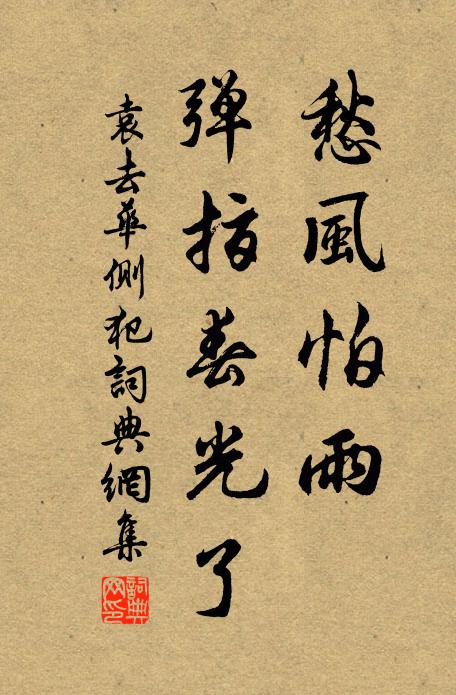 愁風怕雨
彈指春光了
袁去華側犯詞典網集
詞典网印